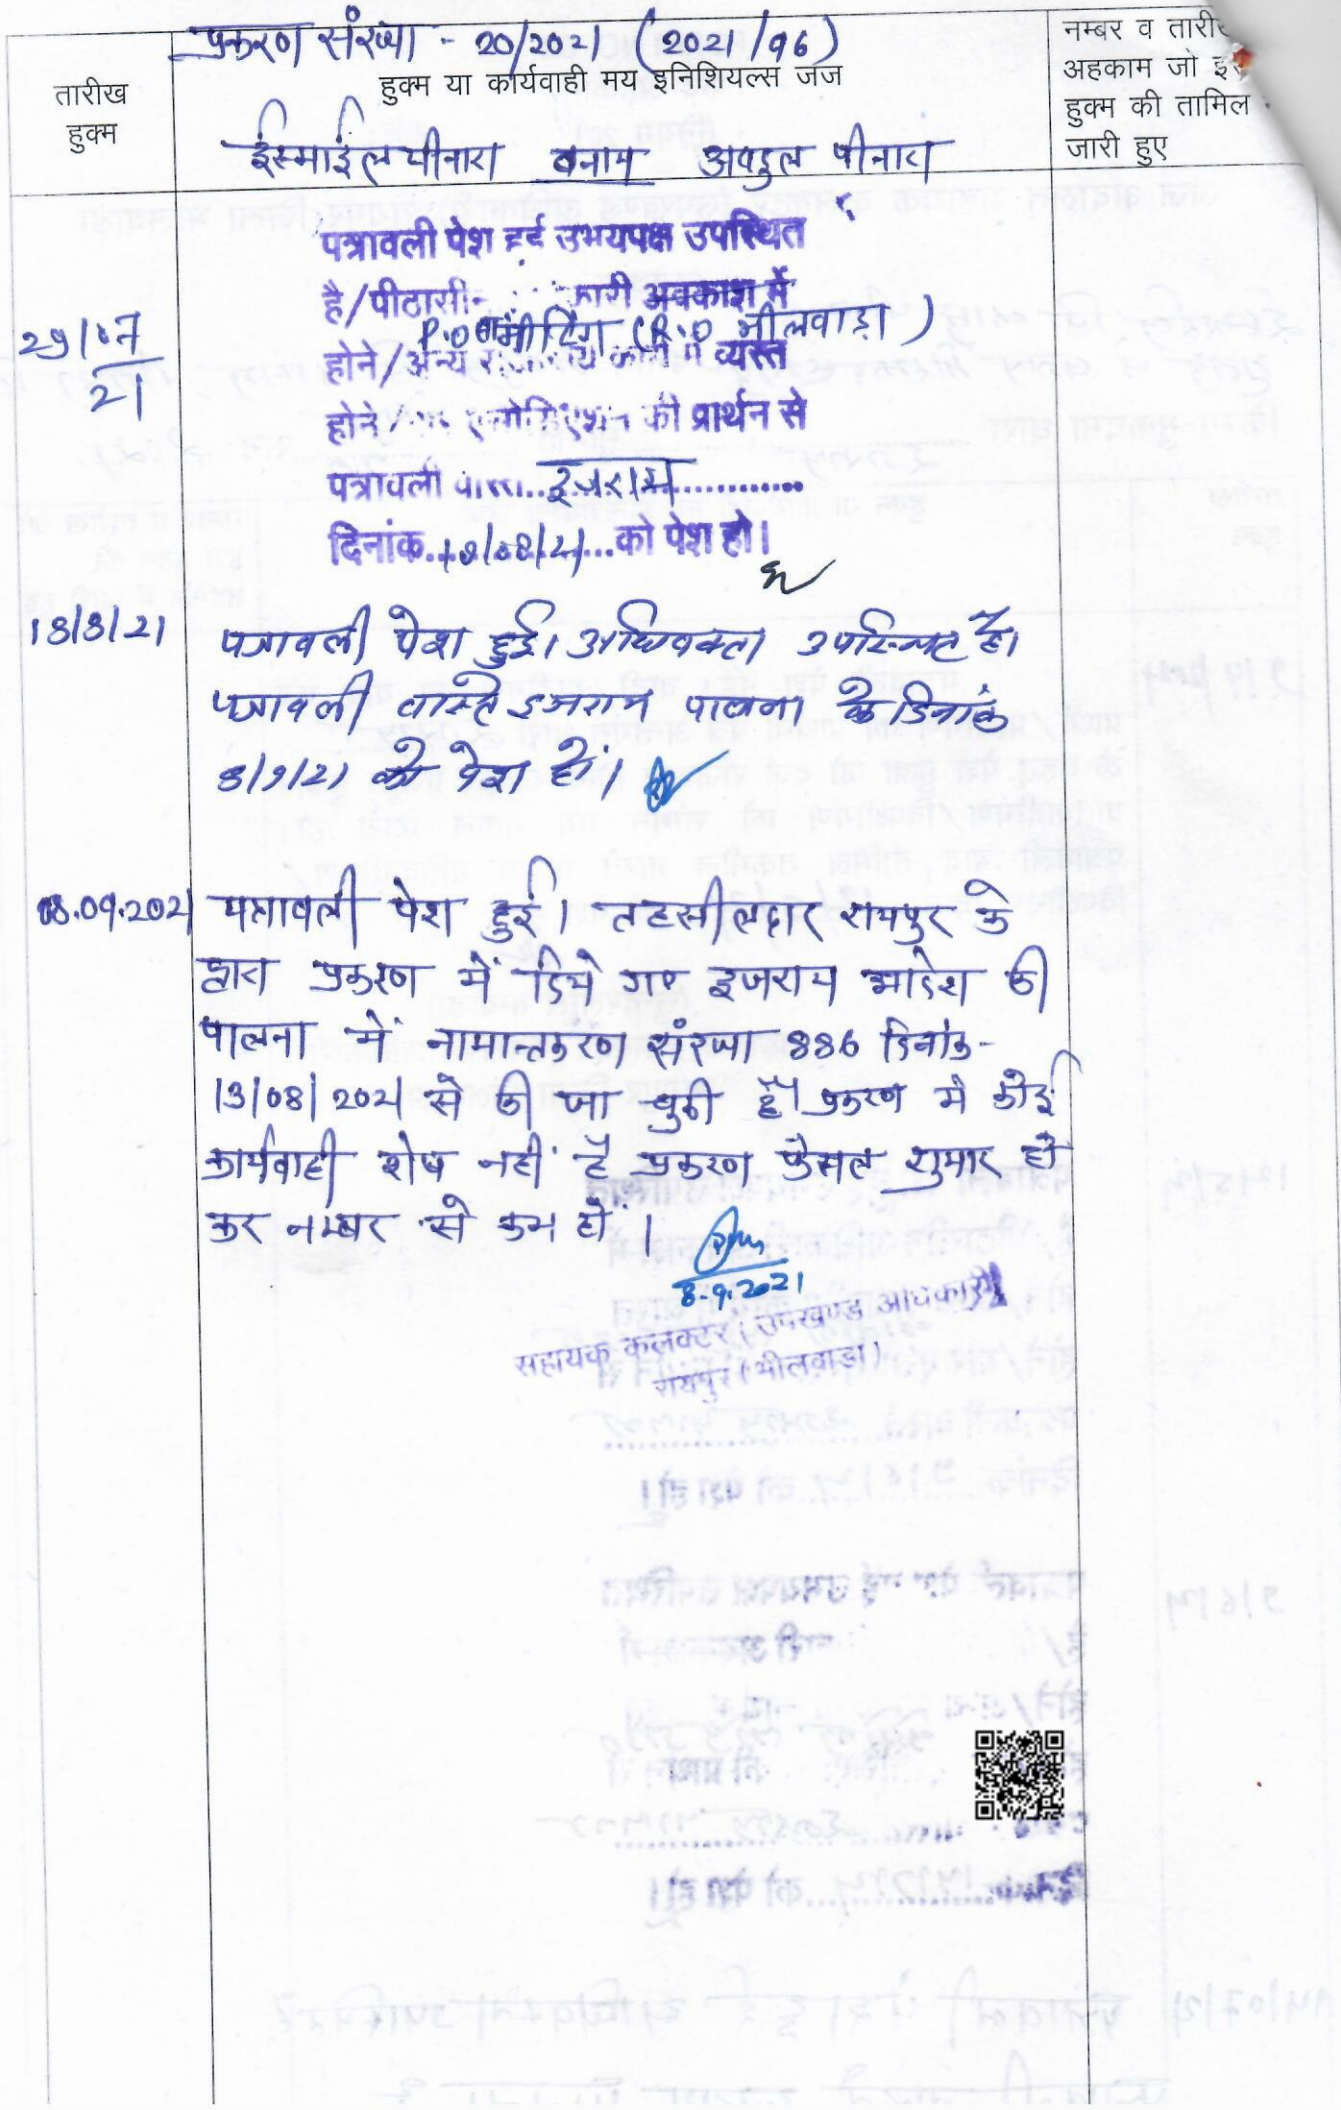 प्रकरण संख्या - 20/2021 (2021/96)
तारीख हुक्म
हुक्म या कार्यवाही मय इनिशियल्स जज
नम्बर व तारीख
अहकाम जो इस
हुक्म की तामिल
जारी हुए
ईस्माईल पीनारा बनाम अबदुल पीनारा
29/07/21
पत्रावली पेश हुई उभयपक्ष उपस्थित
है/पीठासीन कारी अवकाश में
P.O मीटिंग (R.O भीलवाड़ा)
होने/अन्य व्यस्त
होने की प्रार्थन से
पत्रावली वास्ते इजराय
दिनांक 18/08/21 को पेश हो।
18/8/21
पत्रावली पेश हुई। अधिवक्ता उपस्थित है।
पत्रावली वास्ते इजराय पालना के दिनांक
8/9/21 को पेश हो।
08.09.2021
पत्रावली पेश हुई। तहसीलदार रायपुर के
द्वारा प्रकरण में दिये गए इजराय आदेश की
पालना में नामान्तकरण संख्या 886 दिनांक-
13/08/2021 से की जा चुकी है। प्रकरण में कोई
कार्यवाही शेष नहीं है प्रकरण फैसल शुमार हो
कर नम्बर से कम हो।
8-9-2021
सहायक कलक्टर (उपखण्ड अधिकारी)
रायपुर (भीलवाड़ा)